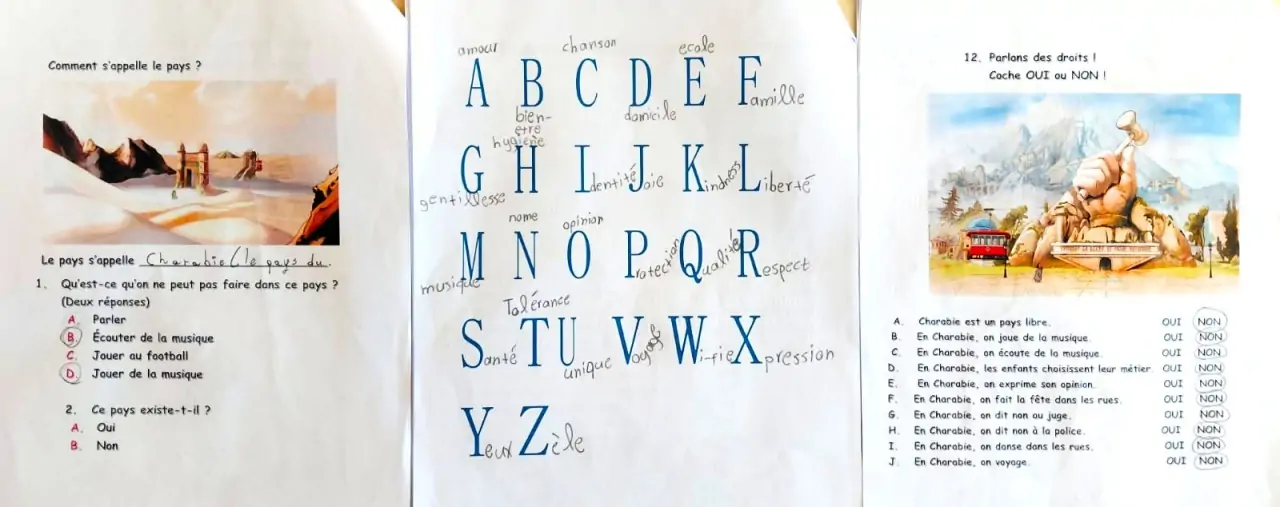 Comment s'appelle le pays ?
Le pays s'appelle Charabie (le pays du.
1. Qu'est-ce qu'on ne peut pas faire dans ce pays ?
(Deux réponses)
A. Parler
B. Écouter de la musique
C. Jouer au football
D. Jouer de la musique
2. Ce pays existe-t-il ?
A. Oui
B. Non
amour chanson ecole
A B C D E Famille
bien-être domicile
hygiène
G H Identité Joie Kindness Liberté
gentillesse
nome opinion
M N O Protection Qualité Respect
musique
Tolérance
Santé T U Voyage Wi-fie Xpression
unique
Yeux Zèle
12. Parlons des droits !
Coche OUI ou NON !
A. Charabie est un pays libre. OUI NON
B. En Charabie, on joue de la musique. OUI NON
C. En Charabie, on écoute de la musique. OUI NON
D. En Charabie, les enfants choisissent leur métier. OUI NON
E. En Charabie, on exprime son opinion. OUI NON
F. En Charabie, on fait la fête dans les rues. OUI NON
G. En Charabie, on dit non au juge. OUI NON
H. En Charabie, on dit non à la police. OUI NON
I. En Charabie, on danse dans les rues. OUI NON
J. En Charabie, on voyage. OUI NON